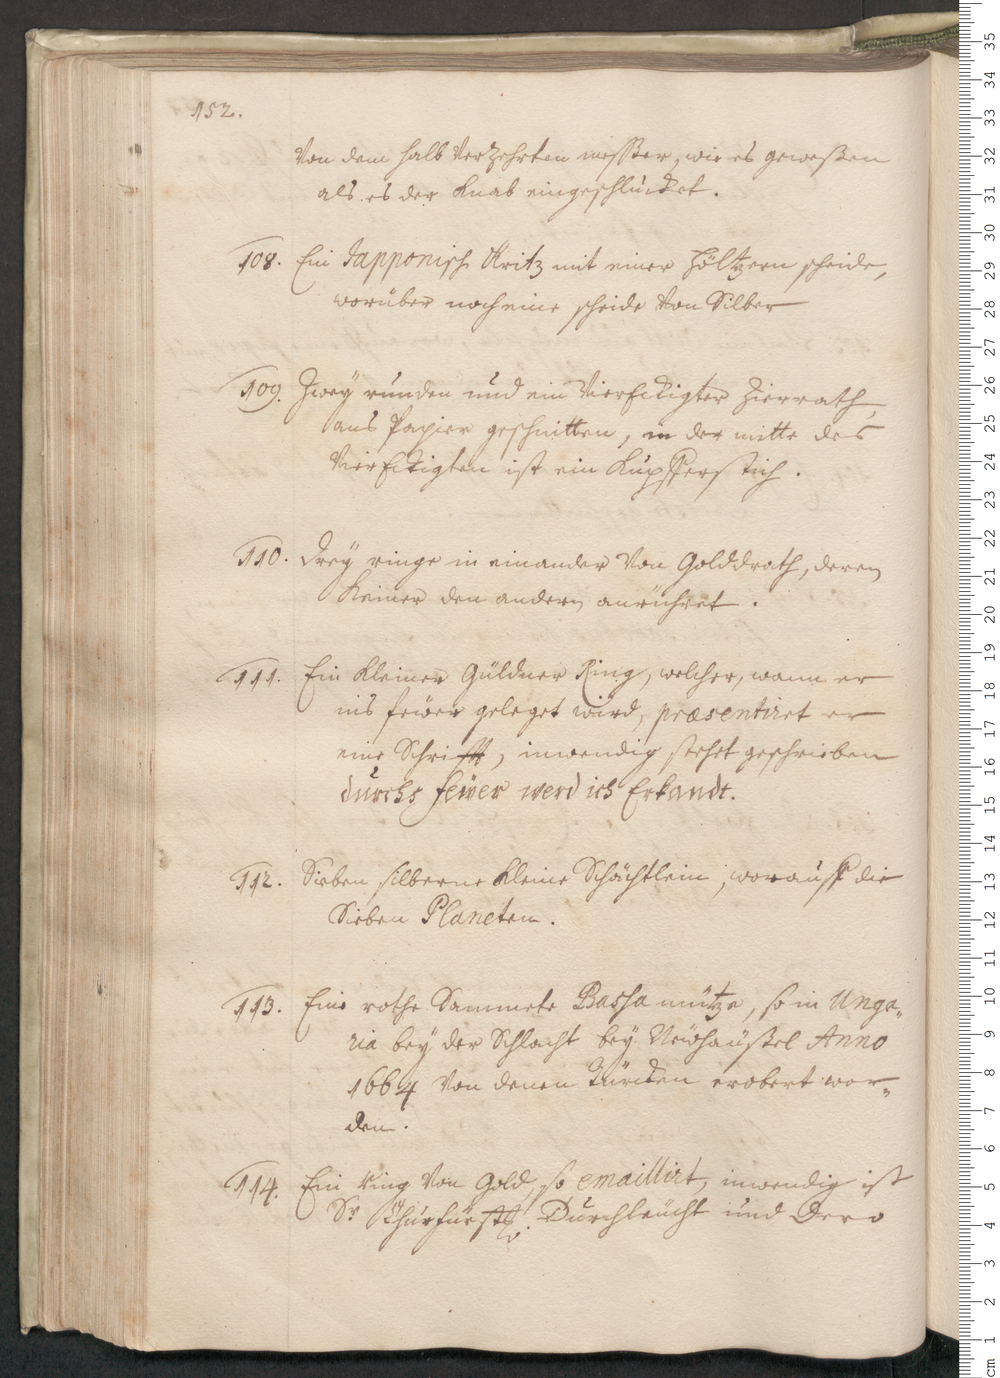 152.
Von dem halb verzehrten messer, wie es geweßen
als es der Knab eingeschlucket.
108. Ein Japponisch Kritz mit einer höltzern scheide,
worüber noch eine scheide von Silber
109. Zwey runden und ein VierEckigter Zierrath,
aus Papier geschnitten, in der mitte des
VierEckigten ist ein Kupfferstich.
110. Drey ringe in einander von Golddrath, deren
Keiner den andern anrühret.
111. Ein Kleiner Güldner Ring, welcher, wann er
ins feüer geleget wird, præsentiret er
eine Schrifft, inwendig stehet geschrieben
durchs feüer werd ich Erkandt.
112. Sieben silberne Kleine Schächtlein, worauff die
Sieben Planeten.
113. Eine rothe Sammete Bassa mütze, so in Unga=
ria bey der Schlacht bey Neühäußel Anno
1664 von denen Türcken erobert wor=
den.
114. Ein Ring von Gold, so emaillirt, inwendig ist
Sr Churfürstl. Durchleücht und Dero
35
34
33
32
31
30
29
28
27
26
25
24
23
22
21
20
19
18
17
16
15
14
13
12
11
10
9
8
7
6
5
4
3
2
1
cm